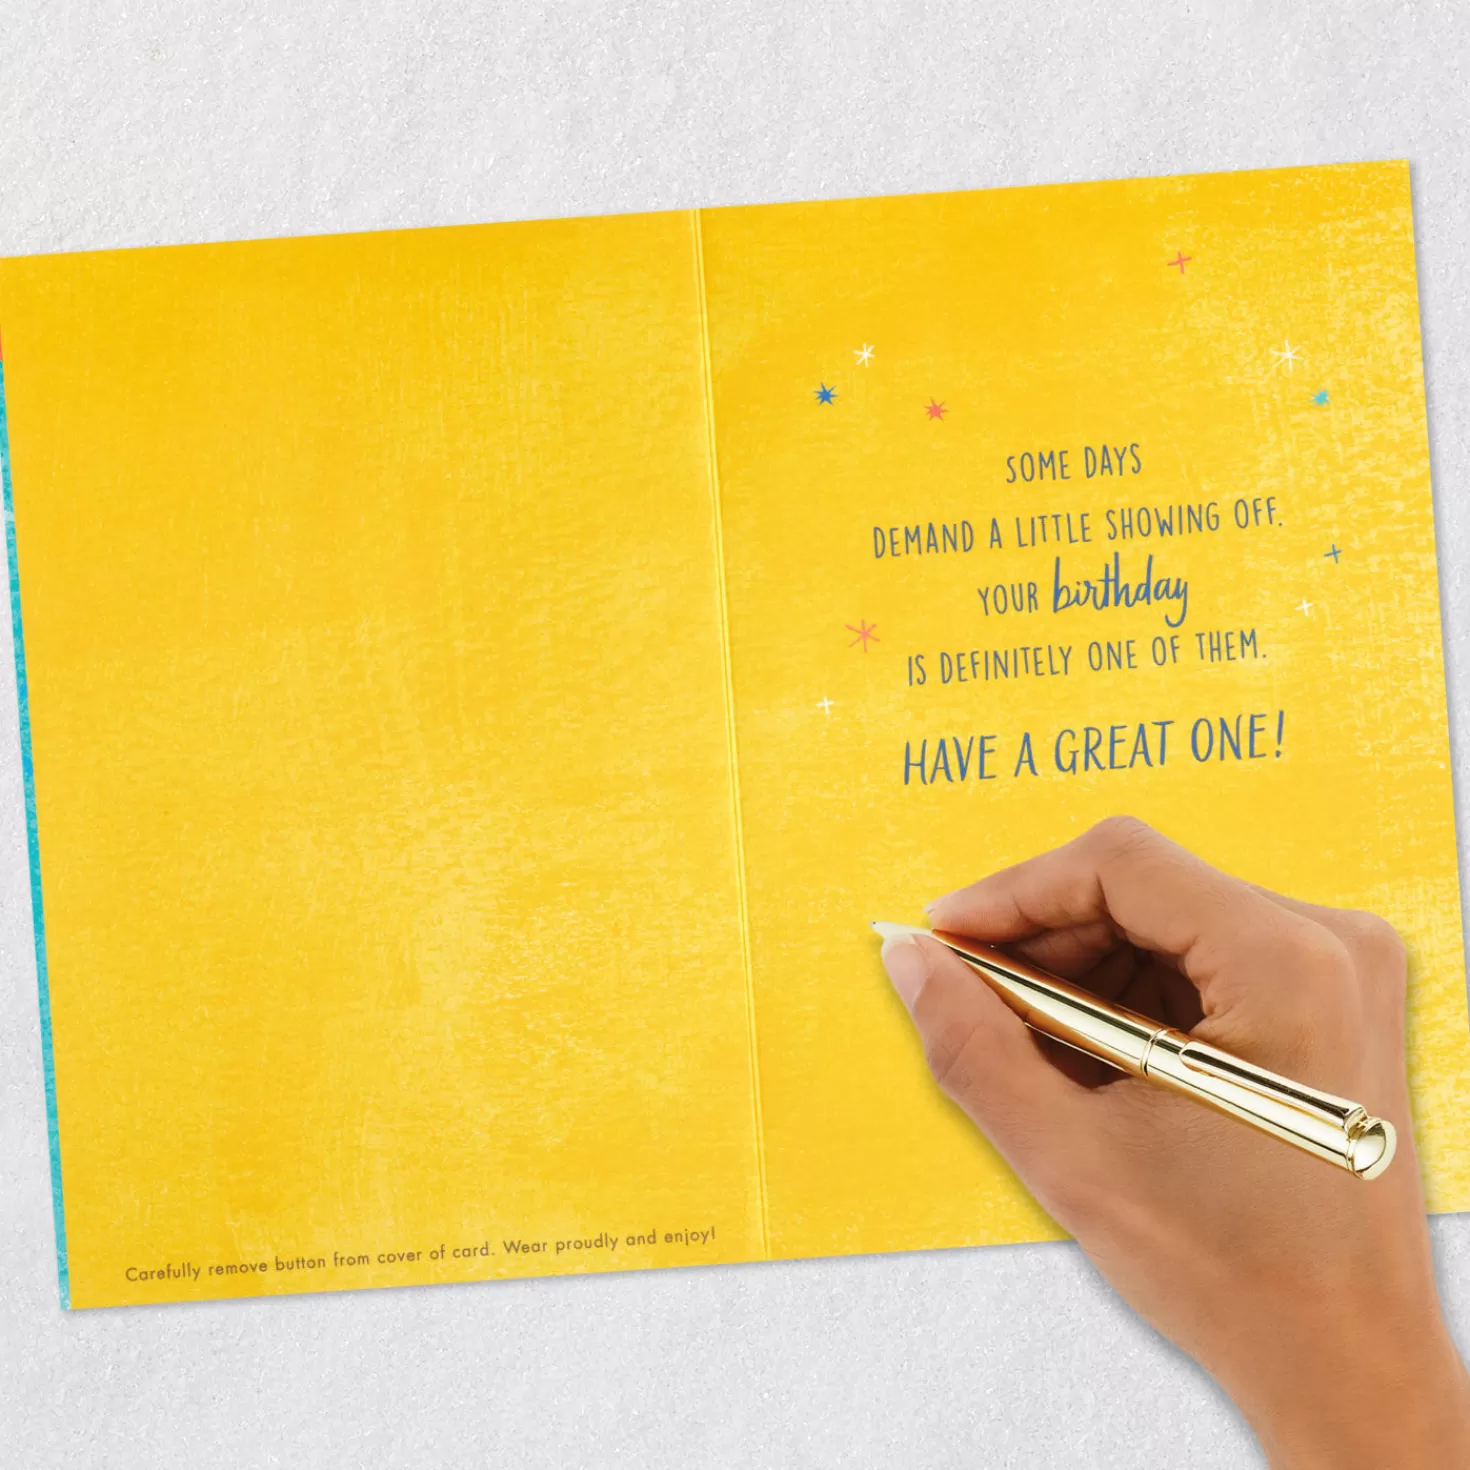 SOME DAYS
DEMAND A LITTLE SHOWING OFF.
YOUR birthday
IS DEFINITELY ONE OF THEM.
HAVE A GREAT ONE!
Carefully remove button from cover of card. Wear proudly and enjoy!